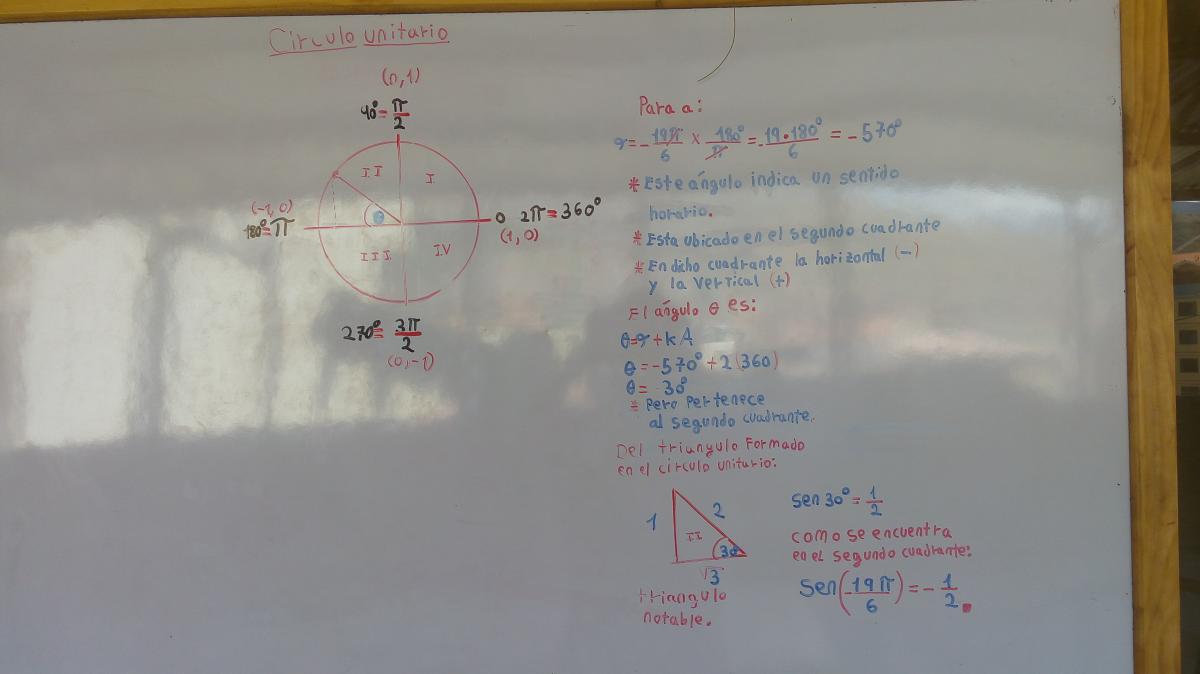 Circulo unitario
(0,1)
90° = π/2
I I
I.
(-1, 0)
180° = π
θ
0 2π = 360°
(1, 0)
I I I.
I.V
270° = 3π/2
(0, -1)
Para a:
= - 19π/6 x 180°/π = - 19•180°/6 = - 570°
* Este ángulo indica un sentido
horario.
* Esta ubicado en el segundo cuadrante
* En dicho cuadrante la horizontal (-)
y la vertical (+)
El ángulo θ es:
θ = -570° + 2(360)
θ = 30°
* Pero pertenece
al segundo cuadrante.
Del triangulo formado
en el circulo unitario:
1
2
I I
30
√3
triangulo
notable.
Sen 30° = 1/2
como se encuentra
en el segundo cuadrante:
Sen(-19π/6) = - 1/2.